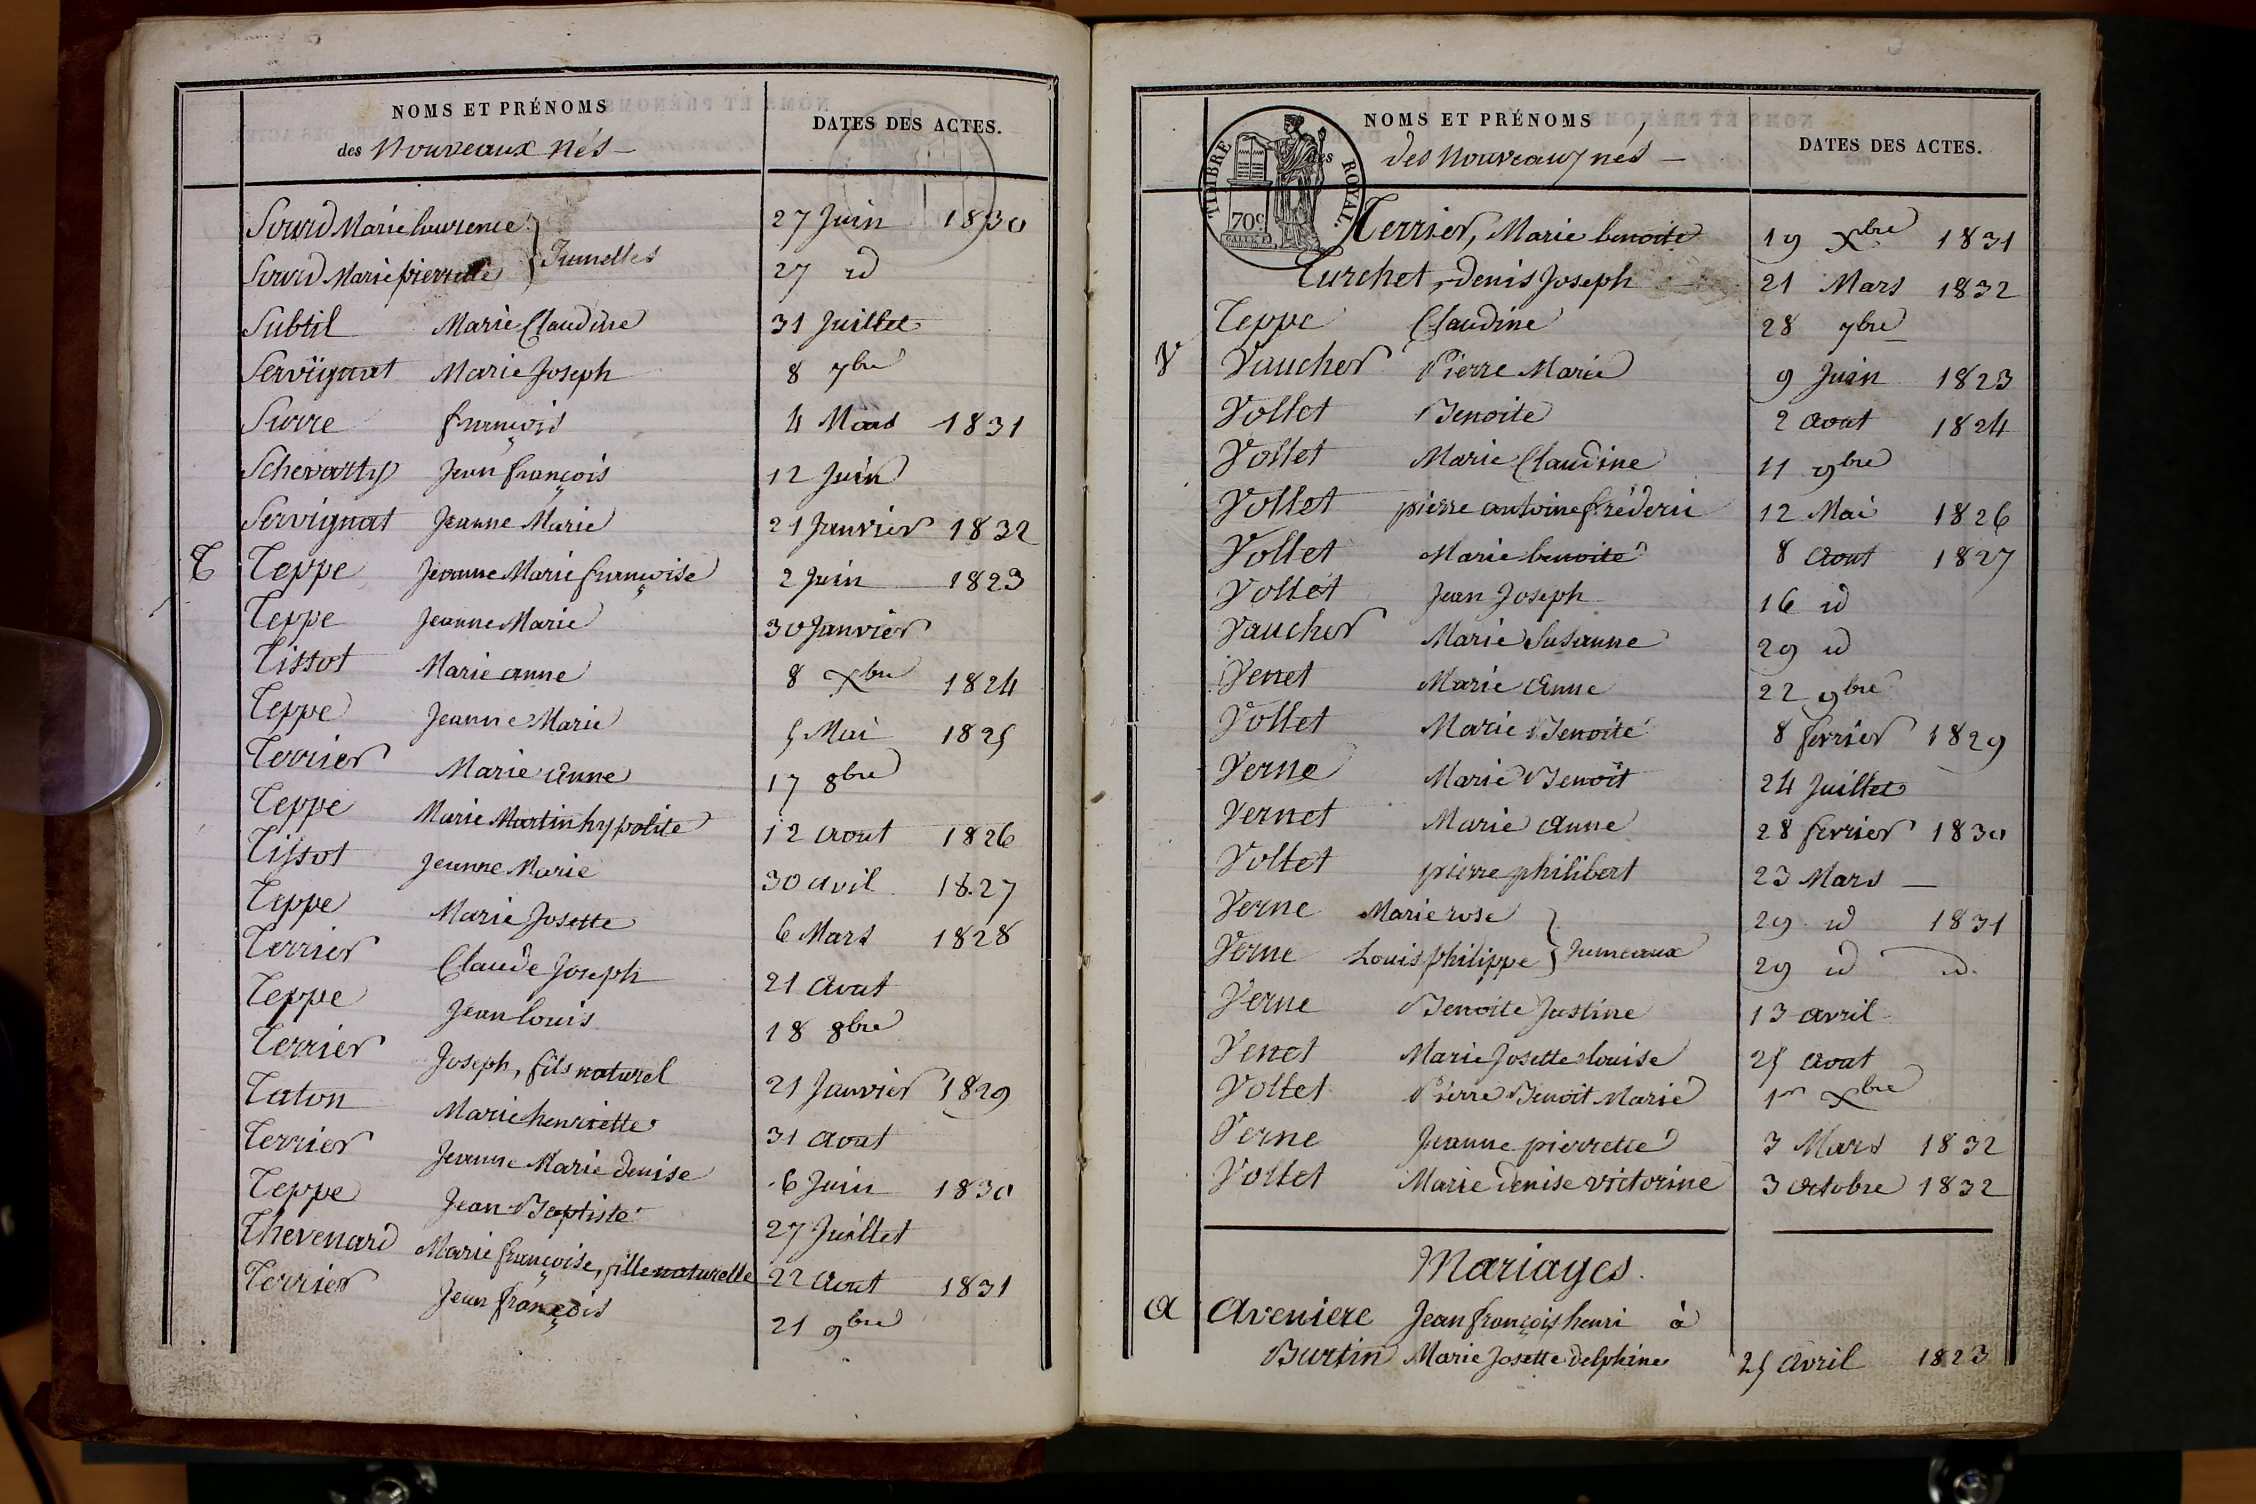 NOMS ET PRÉNOMS
des Nouveaux Nés
DATES DES ACTES.
Sourd Marie laurence 27 Juin 1830
Jumelles
Sourd Marie pierrette 27 id
Subtil Marie Claudine 31 Juillet
Servignat Marie Joseph 8 7bre
Surre françois 4 Mars 1831
Schevartty Jean françois 12 Juin
Servignat Jeanne Marie 21 Janvier 1832
T Teppe Jeanne Marie françoise 2 Juin 1823
Teppe Jeanne Marie 30 Janvier
Tissot Marie anne 8 Xbre 1824
Teppe Jeanne Marie 5 Mai 1825
Terrier Marie anne 17 8bre
Teppe Marie Martin hypolite 12 aout 1826
Tissot Jeanne Marie 30 avil 1827
Teppe Marie Josette 6 Mars 1828
Terrier Claude Joseph 21 Aout
Teppe Jean louis 18 8bre
Terrier Joseph, fils naturel 21 Janvier 1829
Taton Marie henriette 31 Aout
Terrier Jeanne Marie denise 6 Juin 1830
Teppe Jean Baptiste 27 Juillet
Thevenard Marie françoise, fille naturelle 22 Aout 1831
Terrier Jean françois 21 9bre
NOMS ET PRÉNOMS
des
des Nouveaux nés
DATES DES ACTES.
TIMBRE ROYAL.
70c
Terrier, Marie benoite 19 Xbre 1831
Turchet, denis Joseph 21 Mars 1832
Teppe Claudine 28 7bre
V Vaucher Pierre Marie 9 Juin 1823
Vollet Benoite 2 aout 1824
Vollet Marie Claudine 11 9bre
Vollet pierre antoine fréderic 12 Mai 1826
Vollet Marie benoite 8 Aout 1827
Vollet Jean Joseph 16 id
Vaucher Marie Susanne 29 id
Venet Marie Anne 22 9bre
Vollet Marie Benoite 8 fevrier 1829
Verne Marie Benoît 24 Juillet
Vernet Marie anne 28 fevrier 1830
Vollet pierre philibert 23 Mars
Verne Marie rose 29 id 1831
Jumeaux
Verne Louis philippe 29 id id.
Verne Benoite Justine 13 avril
Venet Marie Josette louise 25 Aout
Vollet Pierre Benoit Marie 1er Xbre
Verne Jeanne pierrette 3 Mars 1832
Vollet Marie denise victorine 3 Octobre 1832
Mariages.
A Aveniere Jean françois henri à
Burtin Marie Josette delphine 25 Avril 1823